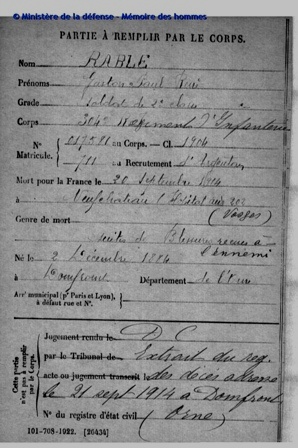 © Ministère de la défense - Mémoire des hommes
PARTIE À REMPLIR PAR LE CORPS.
Nom RABLÉ
Prénoms Gaston
Grade Soldat de 2e
Corps 304e Régiment d'Infanterie
N° au Corps. — Cl. 1904
Matricule. au Recrutement d'Argentan
Mort pour la France le 20 septembre 1914
à Neufchâteau
(Vosges)
Genre de mort
suites de Blessures reçues à
l'ennemi
Né le 2 Décembre 1884
à Domfront Département de l'Orne
Arr¹ municipal (p¹ Paris et Lyon),
à défaut rue et N°.
Cette partie n'est pas à remplir par le Corps.
Jugement rendu le
par le Tribunal de Extrait du reg.
acte ou jugement transcrit le des décès adressé
le 21 sept 1914 à Domfront
N° du registre d'état civil (Orne)
101-708-1922. [26434]